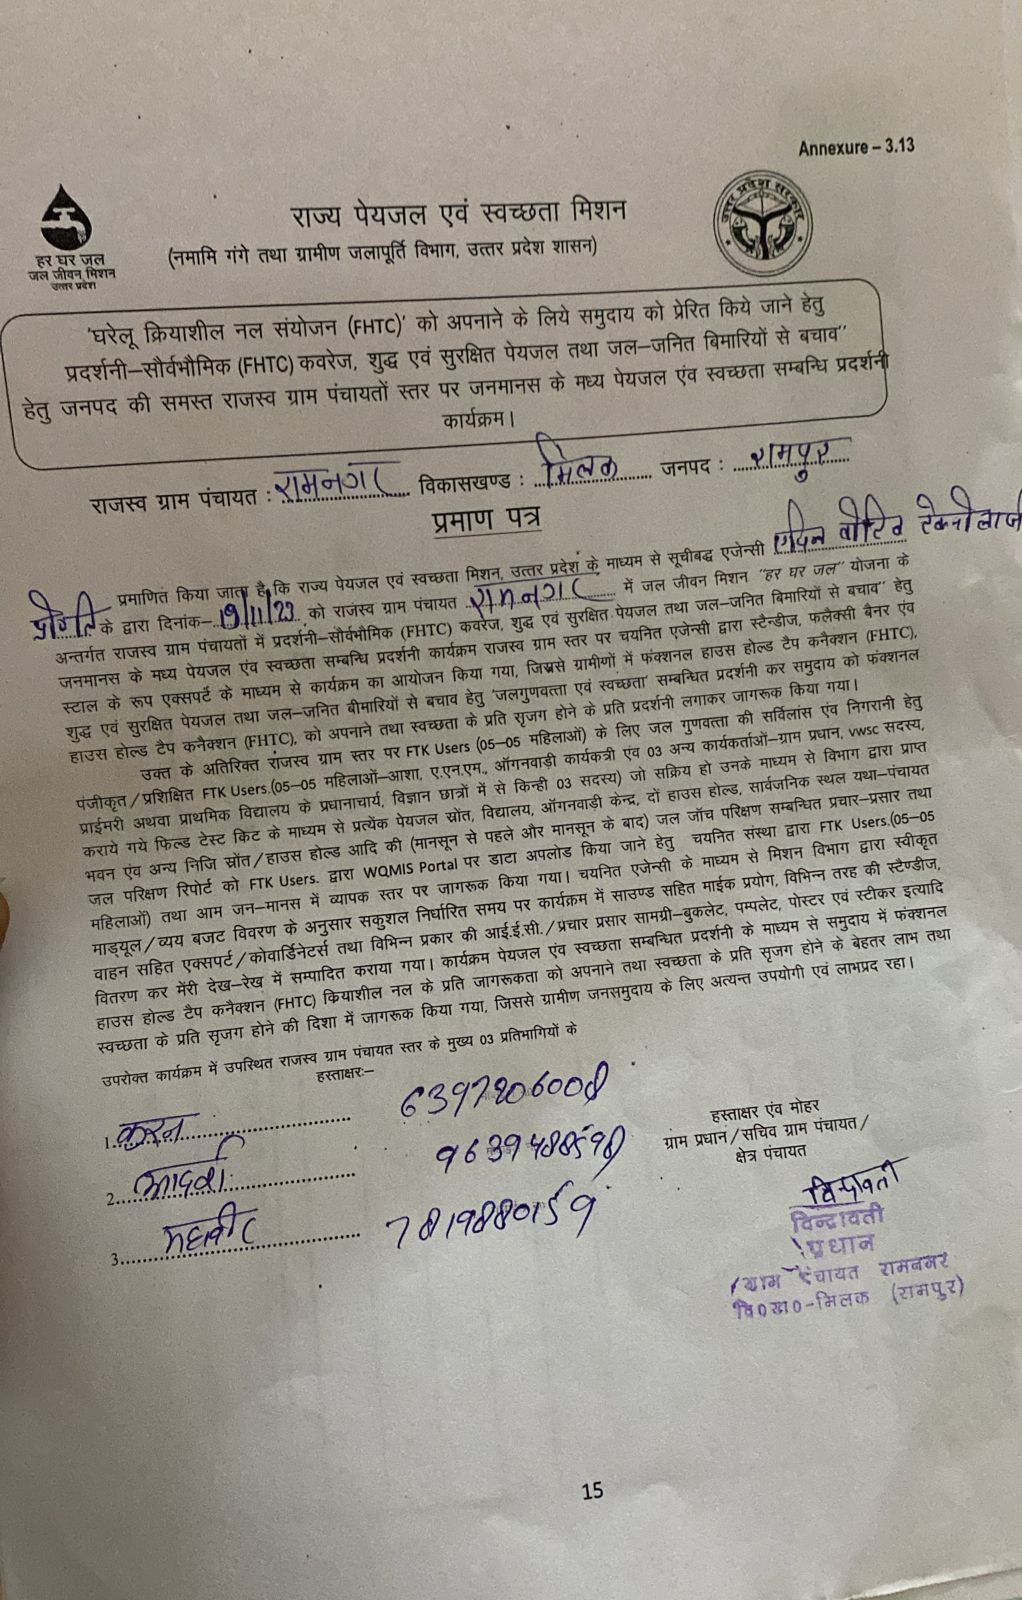 Annexure – 3.13
हर घर जल
जल जीवन मिशन
उत्तर प्रदेश
राज्य पेयजल एवं स्वच्छता मिशन
(नमामि गंगे तथा ग्रामीण जलापूर्ति विभाग, उत्तर प्रदेश शासन)
उत्तर प्रदेश सरकार
'घरेलू क्रियाशील नल संयोजन (FHTC)' को अपनाने के लिये समुदाय को प्रेरित किये जाने हेतु
प्रदर्शनी–सौर्वभौमिक (FHTC) कवरेज, शुद्ध एवं सुरक्षित पेयजल तथा जल–जनित बिमारियों से बचाव''
हेतु जनपद की समस्त राजस्व ग्राम पंचायतों स्तर पर जनमानस के मध्य पेयजल एंव स्वच्छता सम्बन्धि प्रदर्शनी
कार्यक्रम।
राजस्व ग्राम पंचायत : रामनगर विकासखण्ड : मिलक जनपद : रामपुर
प्रमाण पत्र
प्रमाणित किया जाता है कि राज्य पेयजल एवं स्वच्छता मिशन, उत्तर प्रदेश के माध्यम से सूचीबद्ध एजेन्सी
के द्वारा दिनांक– 19/11/23 को राजस्व ग्राम पंचायत रामनगर में जल जीवन मिशन "हर घर जल" योजना के
अन्तर्गत राजस्व ग्राम पंचायतों में प्रदर्शनी–सौर्वभौमिक (FHTC) कवरेज, शुद्ध एंव सुरक्षित पेयजल तथा जल–जनित बिमारियों से बचाव" हेतु
जनमानस के मध्य पेयजल एंव स्वच्छता सम्बन्धि प्रदर्शनी कार्यक्रम राजस्व ग्राम स्तर पर चयनित एजेन्सी द्वारा स्टैन्डीज, फलैक्सी बैनर एंव
स्टाल के रूप एक्सपर्ट के माध्यम से कार्यक्रम का आयोजन किया गया, जिससे ग्रामीणों में फंक्शनल हाउस होल्ड टैप कनैक्शन (FHTC),
शुद्ध एवं सुरक्षित पेयजल तथा जल–जनित बीमारियों से बचाव हेतु 'जलगुणवत्ता एवं स्वच्छता' सम्बन्धित प्रदर्शनी कर समुदाय को फंक्शनल
हाउस होल्ड टैप कनैक्शन (FHTC), को अपनाने तथा स्वच्छता के प्रति सृजग होने के प्रति प्रदर्शनी लगाकर जागरूक किया गया।
उक्त के अतिरिक्त राजस्व ग्राम स्तर पर FTK Users (05–05 महिलाओं) के लिए जल गुणवत्ता की सर्विलांस एंव निगरानी हेतु
पंजीकृत/प्रशिक्षित FTK Users.(05–05 महिलाओं–आशा, ए.एन.एम., ऑगनवाड़ी कार्यकत्री एंव 03 अन्य कार्यकर्ताओं–ग्राम प्रधान, vwsc सदस्य,
प्राईमरी अथवा प्राथमिक विद्यालय के प्रधानाचार्य, विज्ञान छात्रों में से किन्ही 03 सदस्य) जो सक्रिय हो उनके माध्यम से विभाग द्वारा प्राप्त
कराये गये फिल्ड टेस्ट किट के माध्यम से प्रत्येक पेयजल स्रोंत, विद्यालय, ऑगनवाड़ी केन्द्र, दों हाउस होल्ड, सार्वजनिक स्थल यथा–पंचायत
भवन एंव अन्य निजि स्रोंत/हाउस होल्ड आदि की (मानसून से पहले और मानसून के बाद) जल जॉच परिक्षण सम्बन्धित प्रचार–प्रसार तथा
जल परिक्षण रिपोर्ट को FTK Users. द्वारा WQMIS Portal पर डाटा अपलोड किया जाने हेतु चयनित संस्था द्वारा FTK Users.(05–05
महिलाओं) तथा आम जन–मानस में व्यापक स्तर पर जागरूक किया गया। चयनित एजेन्सी के माध्यम से मिशन विभाग द्वारा स्वीकृत
माड्यूल/व्यय बजट विवरण के अनुसार सकुशल निर्धारित समय पर कार्यक्रम में साउण्ड सहित माईक प्रयोग, विभिन्न तरह की स्टैण्डीज,
वाहन सहित एक्सपर्ट/कोवार्डिनेटर्स तथा विभिन्न प्रकार की आई.ई.सी./प्रचार प्रसार सामग्री–बुकलेट, पम्पलेट, पोस्टर एवं स्टीकर इत्यादि
वितरण कर मेंरी देख–रेख में सम्पादित कराया गया। कार्यक्रम पेयजल एंव स्वच्छता सम्बन्धित प्रदर्शनी के माध्यम से समुदाय में फंक्शनल
हाउस होल्ड टैप कनैक्शन (FHTC) कियाशील नल के प्रति जागरूकता को अपनाने तथा स्वच्छता के प्रति सृजग होने के बेहतर लाभ तथा
स्वच्छता के प्रति सृजग होने की दिशा में जागरूक किया गया, जिससे ग्रामीण जनसमुदाय के लिए अत्यन्त उपयोगी एवं लाभप्रद रहा।
उपरोक्त कार्यक्रम में उपस्थित राजस्व ग्राम पंचायत स्तर के मुख्य 03 प्रतिभागियों के
हस्ताक्षरः–
1. करन
2. आदर्श
3. महावीर
हस्ताक्षर एंव मोहर
ग्राम प्रधान/सचिव ग्राम पंचायत/
क्षेत्र पंचायत
विन्द्रावती
प्रधान
ग्राम पंचायत रामनगर
वि0ख0-मिलक (रामपुर)
15